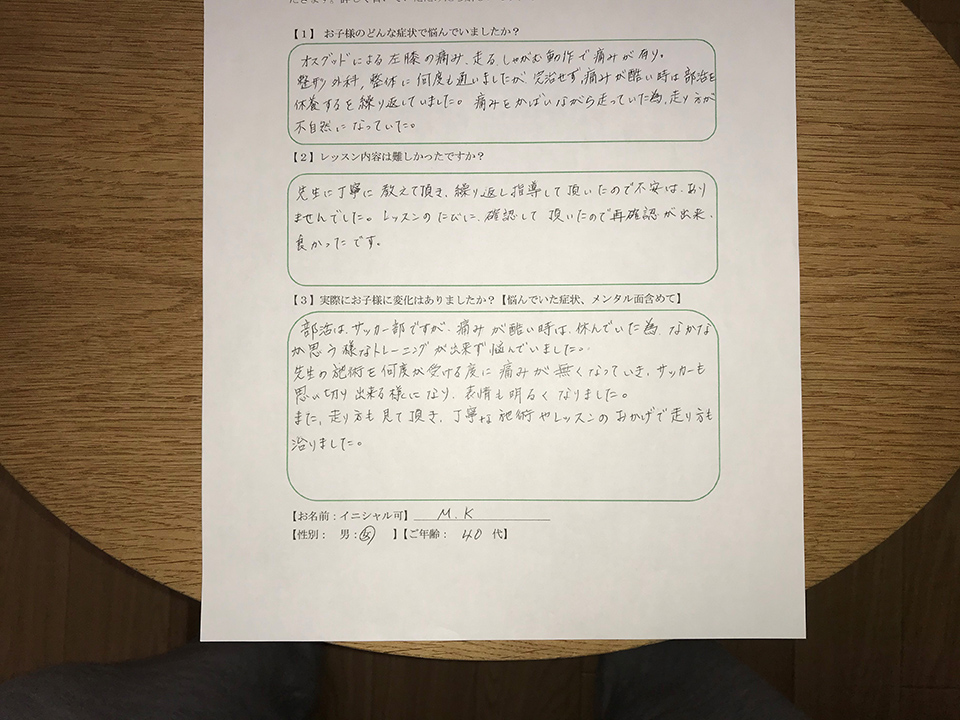 【1】 お子様のどんな症状で悩んでいましたか？
オスグッドによる左膝の痛み、走る、しゃがむ動作で痛みが有り。
整形外科、整体に何度も通いましたが、完治せず、痛みが酷い時は部活を
休養するを繰り返していました。痛みをかばいながら走っていた為、走り方が
不自然になっていた。
【2】レッスン内容は難しかったですか？
先生に丁寧に教えて頂き、繰り返し指導して頂いたので不安は、あり
ませんでした。レッスンのたびに、確認して頂いたので再確認が出来、
良かったです。
【3】実際にお子様に変化はありましたか？【悩んでいた症状、メンタル面含めて】
部活は、サッカー部ですが、痛みが酷い時は、休んでいた為、なかな
か思う様なトレーニングが出来ず悩んでいました。
先生の施術を何度か受ける度に痛みが無くなっていき、サッカーも
思い切り出来る様になり、表情も明るくなりました。
また、走り方も見て頂き、丁寧な施術やレッスンのおかげで走り方も
治りました。
【お名前：イニシャル可】 M.K
【性別： 男：女 】【ご年齢： 40 代】